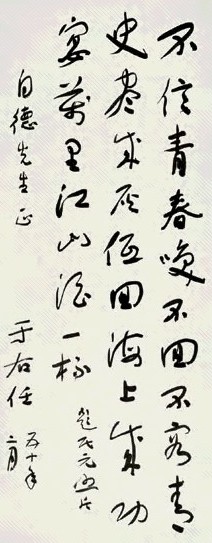 不信青春喚不回不容青
史盡成灰低回海上成功
宴萬里江山酒一杯
題民元照片
自德先生正
于右任
五十年
二月